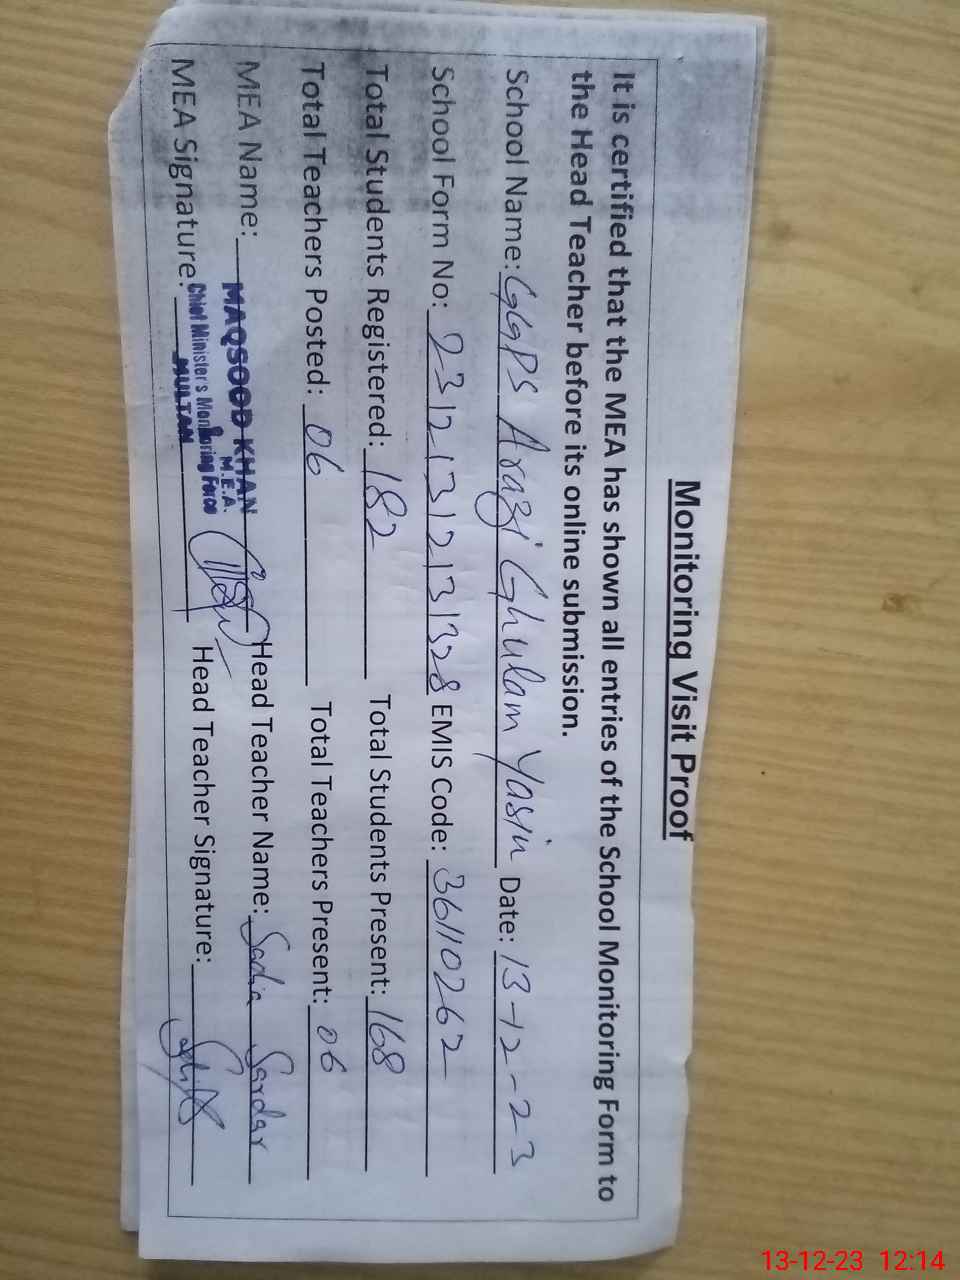 Monitoring Visit Proof
It is certified that the MEA has shown all entries of the School Monitoring Form to
the Head Teacher before its online submission.
School Name: GGPS Arazi Ghulam Yasin Date: 13-12-23
School Form No: 23121312131328 EMIS Code: 36110262
Total Students Registered: 182 Total Students Present: 168
Total Teachers Posted: 06 Total Teachers Present: 06
MEA Name: MAQSOOD KHAN Head Teacher Name: Sadia Sardar
M.E.A.
MEA Signature: Chief Minister's Monitoring Force Head Teacher Signature:
MULTAN
13-12-23 12:14